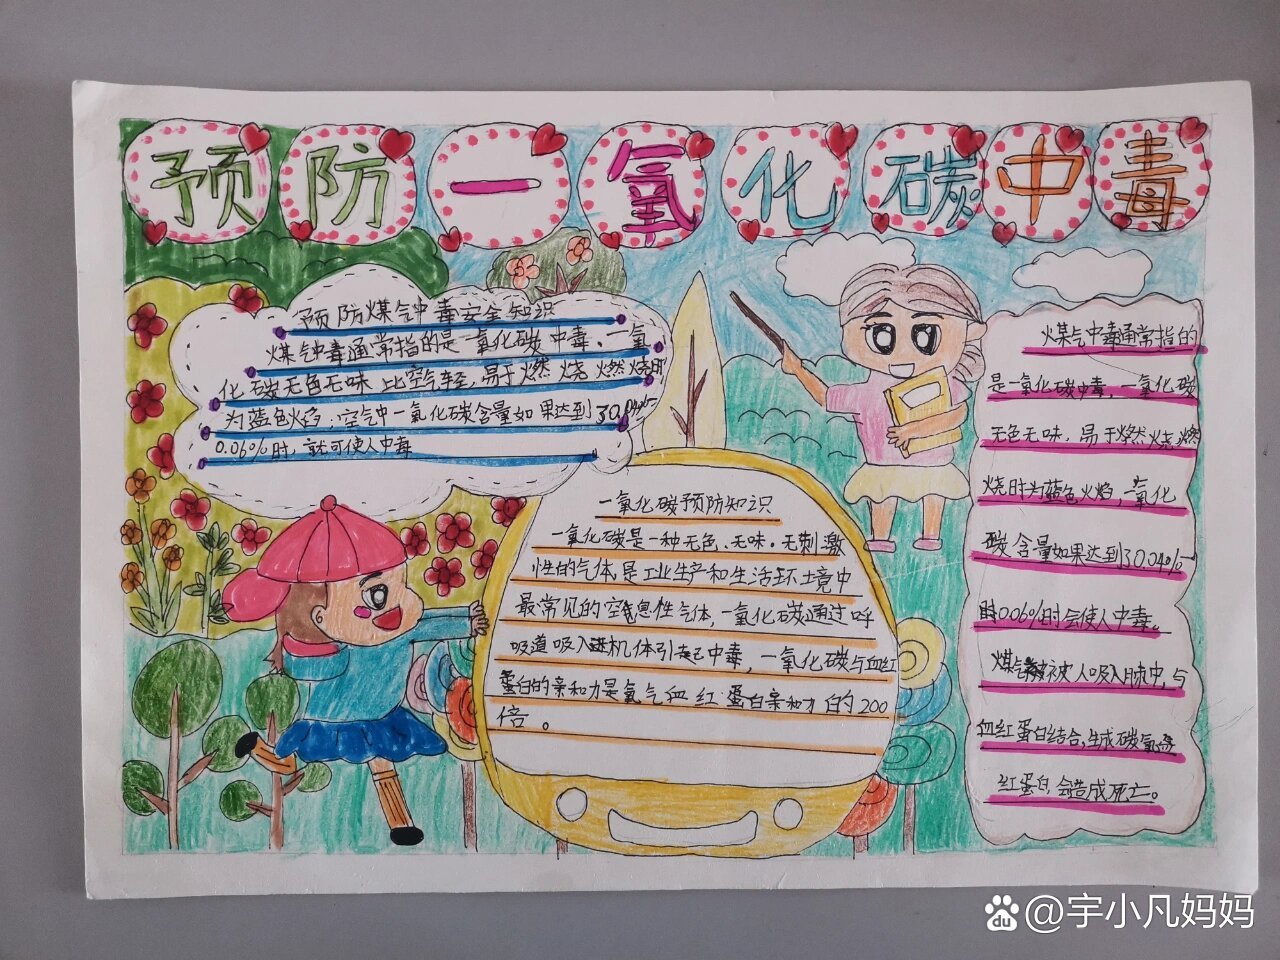 预防一氧化碳中毒
预防煤气中毒安全知识
煤气中毒通常指的是一氧化碳中毒、一氧
化碳无色无味比空气轻,易于燃烧燃烧时
为蓝色火焰,空气中一氧化碳含量如果达到30.04%-
0.06%时,就可使人中毒
一氧化碳预防知识
一氧化碳是一种无色、无味。无刺激
性的气体,是工业生产和生活环境中
最常见的窒息性气体,一氧化碳通过呼
吸道吸入进机体引起中毒,一氧化碳与血红
蛋白的亲和力是氧气血红蛋白亲和力白的200
倍。
煤气中毒通常指的
是一氧化碳中毒,一氧化碳
无色无味,易于燃烧燃
烧时为蓝色火焰,一氧化
碳含量如果达到30.04%-
时0.06%时会使人中毒。
煤气被人吸入肺中,与
血红蛋白结合,生成碳氧
红蛋白会造成死亡。
du @宇小凡妈妈